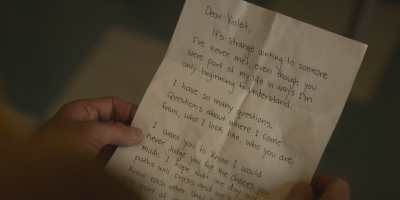 Dear Violet,
It's strange writing to someone
I've never met, even though you
were part of my life in ways I'm
only beginning to understand.
I have so many questions.
Questions about where I came
from, who I look like, who you are.
I want you to know I would
never judge you for the choices you
made. I hope that one day our
paths will cross and we'll
know each other. Until
part of